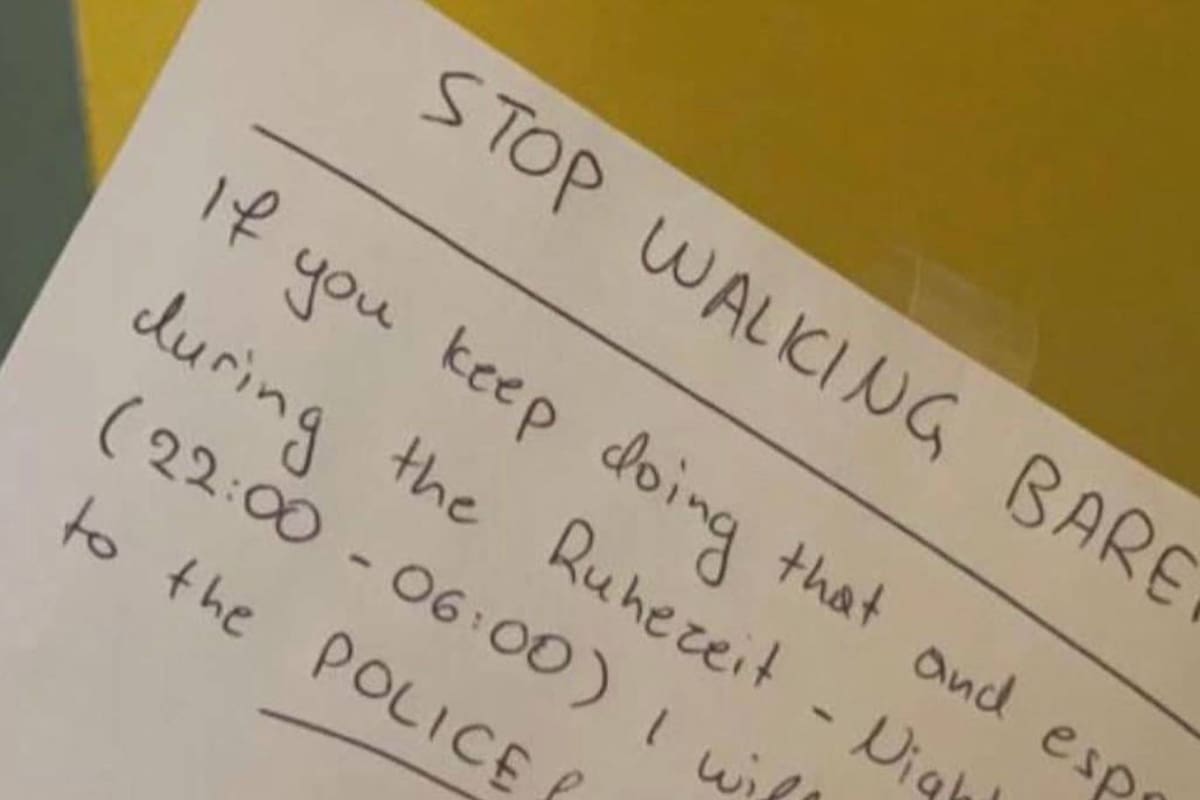 STOP WALKING
If you keep doing that and
during the Ruhezeit -
(22:00 - 06:00) I will
to the POLICE!